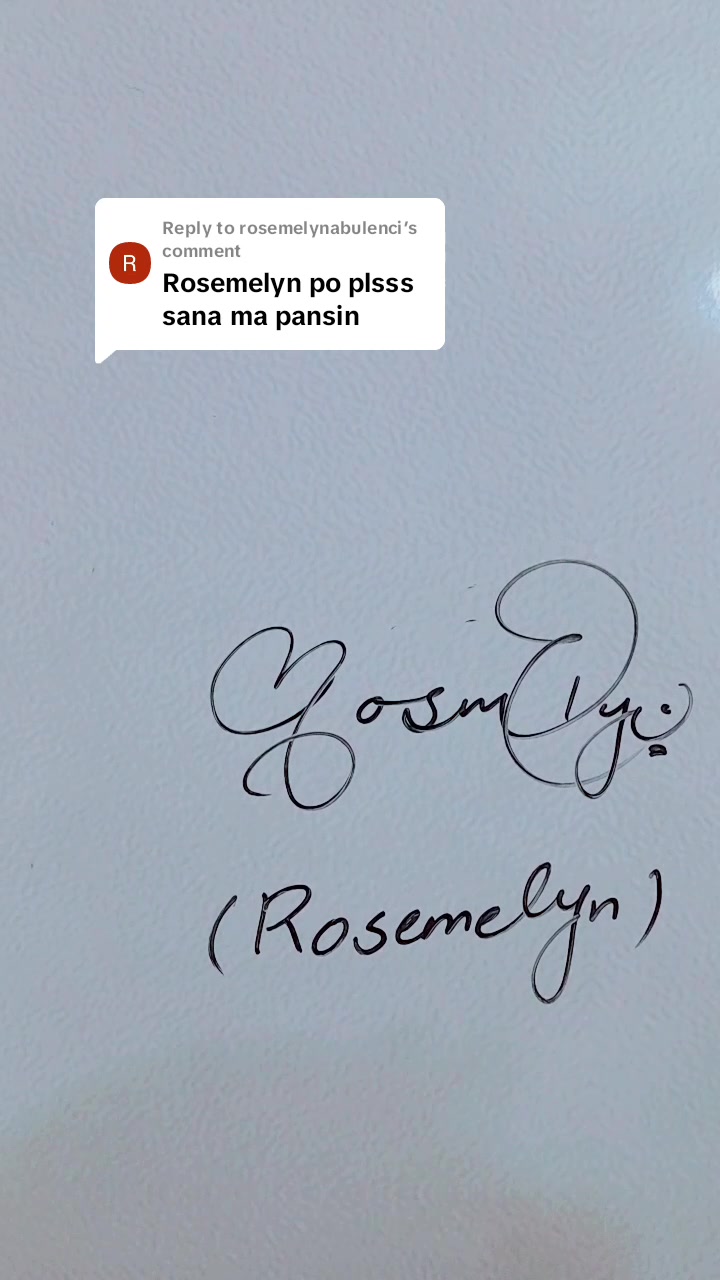 Reply to rosemelynabulenci's
comment
R
Rosemelyn po plsss
sana ma pansin
(Rosemelyn)